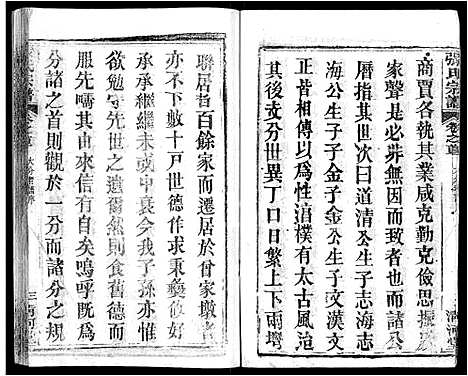 張氏宗譜
卷之首
商賈各執其業咸克勤克儉思振
家聲是必非無因而致者也而諸公
曆指其世次曰道清公生子志海志
海公生子子金子金公生子文漢文
昔世相傳以爲性沮樸有太古風治
其後支分世異丁口日繁上下兩塆
聯居者百餘家而遷居於曾家墩者
亦不下數十戶世德作求秉彝好德
承承繼繼未或中衰今我子孫亦惟
欲勉守先世之遺爾然則食舊德而
服先疇其由來信有自矣嗚呼旣爲
分諸之首則觀於一分而諸分之規